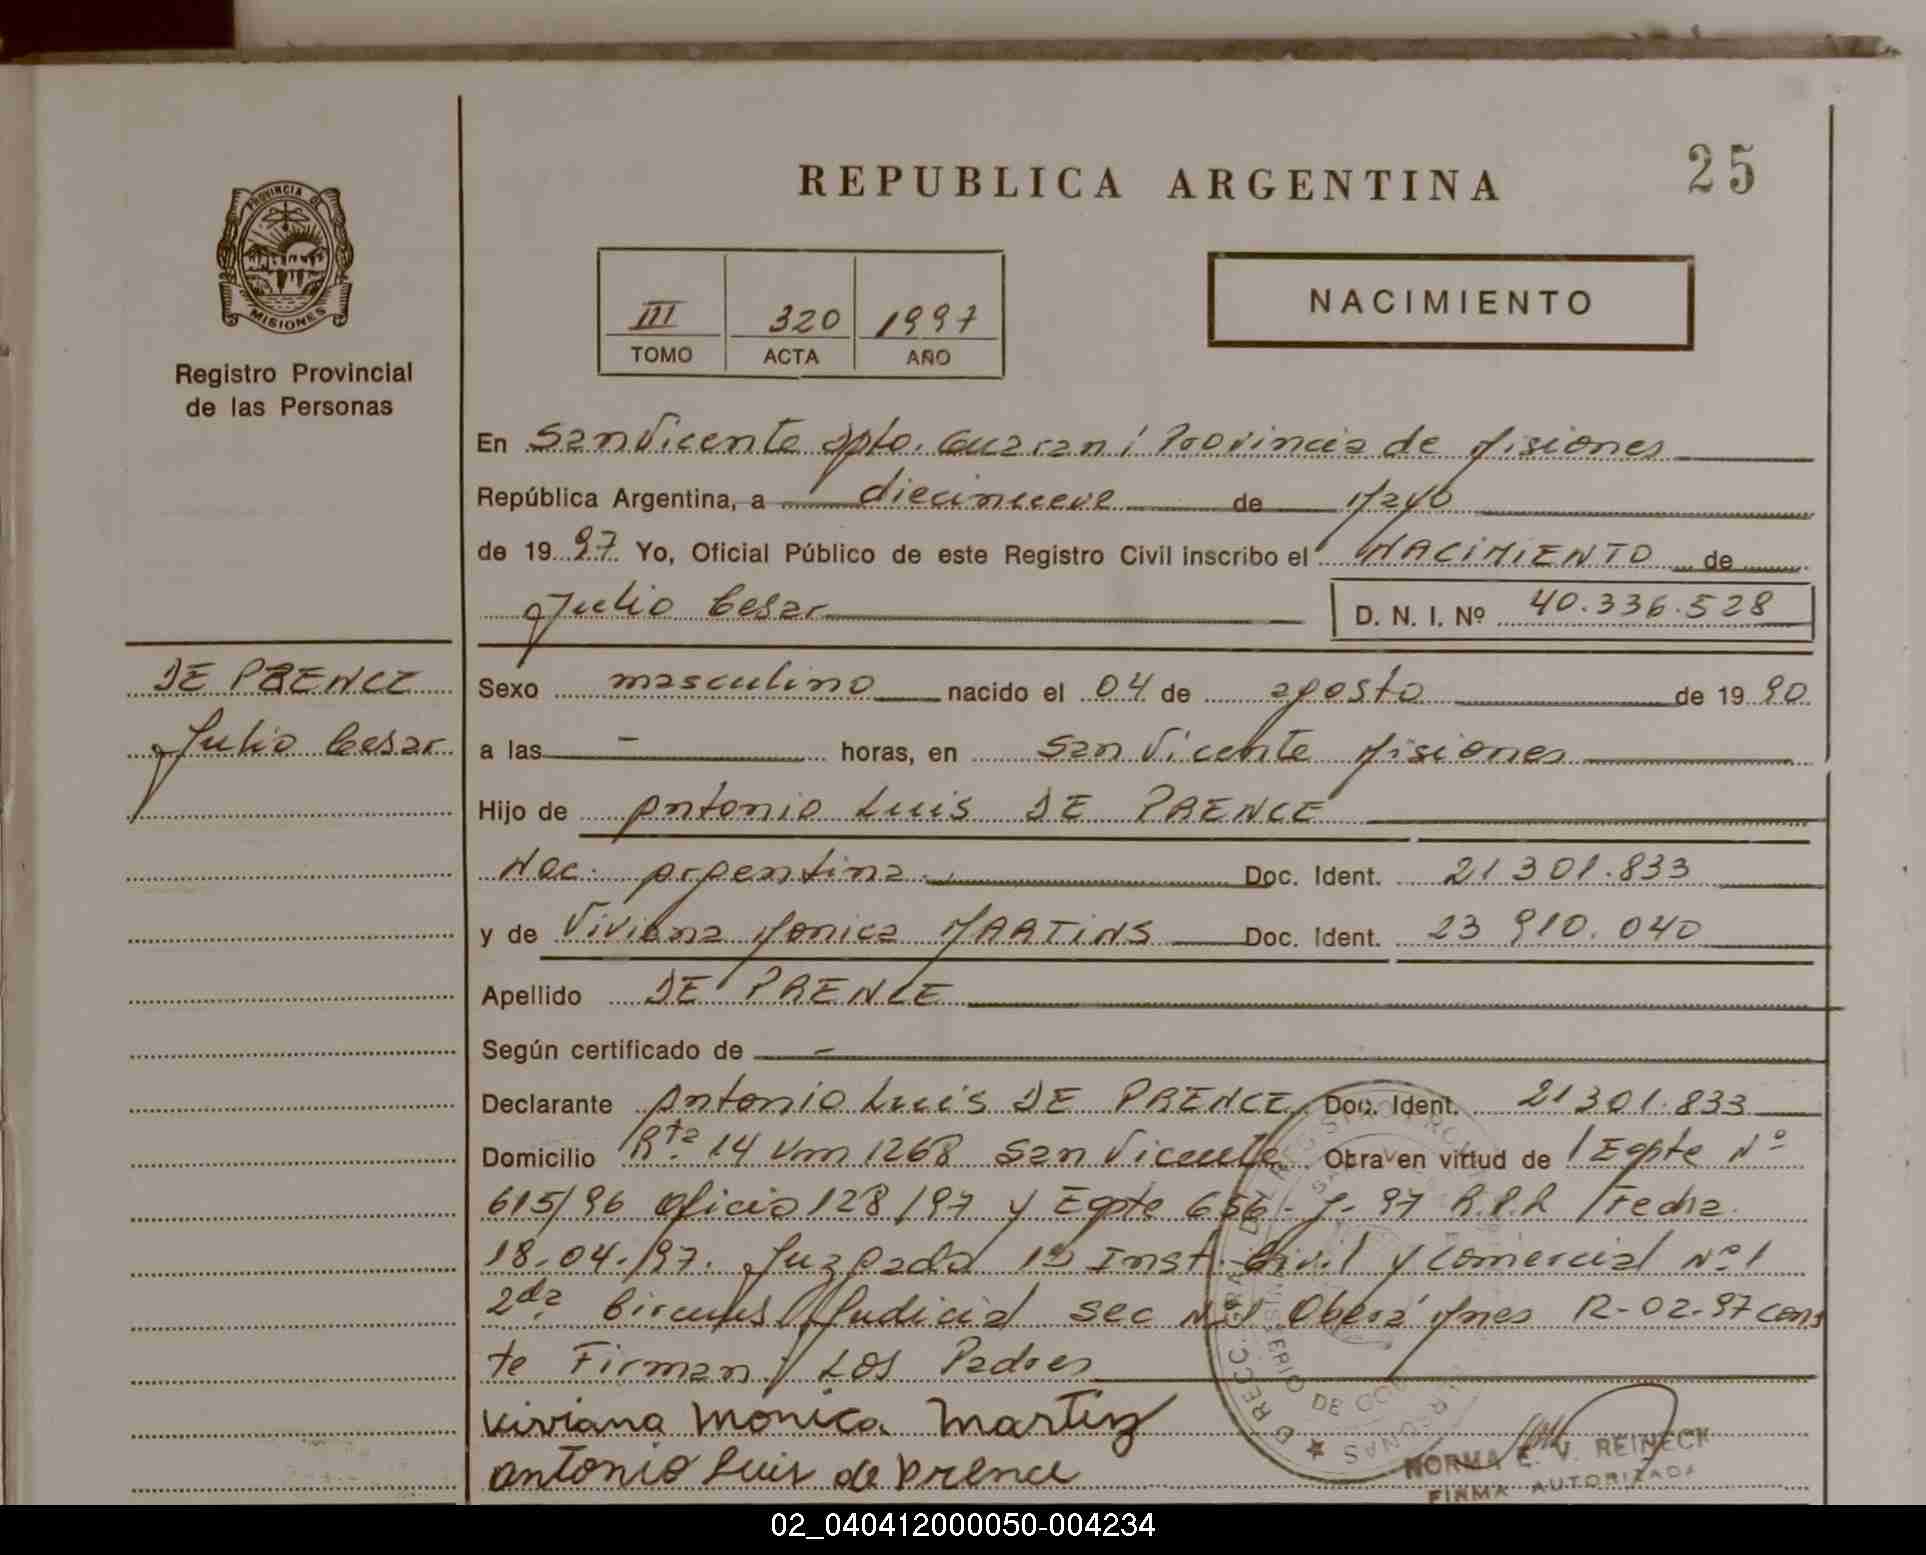 REPUBLICA ARGENTINA
25
PROVINCIA DE
MISIONES
Registro Provincial
de las Personas
III 320 1997
TOMO ACTA AÑO
NACIMIENTO
En San Vicente Dpto. Guaraní Provincia de Misiones
República Argentina, a diecinueve de Mayo
de 1997 Yo, Oficial Público de este Registro Civil inscribo el NACIMIENTO de
Julio Cesar D. N. I. Nº 40.336.528
DE PRENCE
Julio Cesar
Sexo masculino nacido el 04 de agosto de 1990
a las - horas, en San Vicente Misiones
Hijo de Antonio Luis DE PRENCE
Nac. Argentina Doc. Ident. 21 301.833
y de Viviana Monica MARTINS Doc. Ident. 23 910.040
Apellido DE PRENCE
Según certificado de -
Declarante Antonio Luis DE PRENCE Doc. Ident. 21 301.833
Domicilio Rta. 14 Km 1268 San Vicente Obra en virtud de / Expte Nº
615/96 Oficio 128/97 y Expte 656-J-97 R.P.P. / Fecha
18.04./97. Juzgado 1º Inst. Civil y Comercial Nº 1
2da Circuns. Judicial Sec Nº 1 Oberá Mnes R-02-97 cons
te Firman: Los Padres
Viviana Monica Martinz
Antonio Luis de Prence
NORMA E. V. REINECK
FIRMA AUTORIZADA
02_040412000050-004234